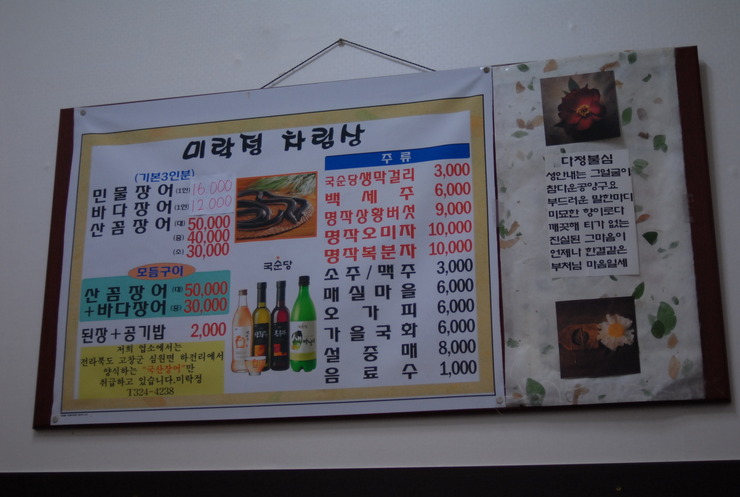 미락정 차림상
(기본3인분)
민물장어 (1인) 16,000
바다장어 (1인) 12,000
산꼼장어 (대) 50,000
(중) 40,000
(소) 30,000
모듬구이
산꼼장어 (대) 50,000
+바다장어 (중) 30,000
된장+공기밥 2,000
저희 업소에서는
전라북도 고창군 심원면 하전리에서
양식하는 "국산장어"만
취급하고 있습니다.미락정
T324-4238
국순당
주 류
국순당생막걸리 3,000
백세주 6,000
명작상황버섯 9,000
명작오미자 10,000
명작복분자 10,000
소주/맥주 3,000
매실마을 6,000
오가피 6,000
가을국화 6,000
설중매 8,000
음료수 1,000
다정불심
성안내는 그얼굴이
참다운공양구요
부드러운 말한마디
미묘한 향이로다
깨끗해 티가 없는
진실된 그마음이
언제나 한결같은
부처님 마음일세